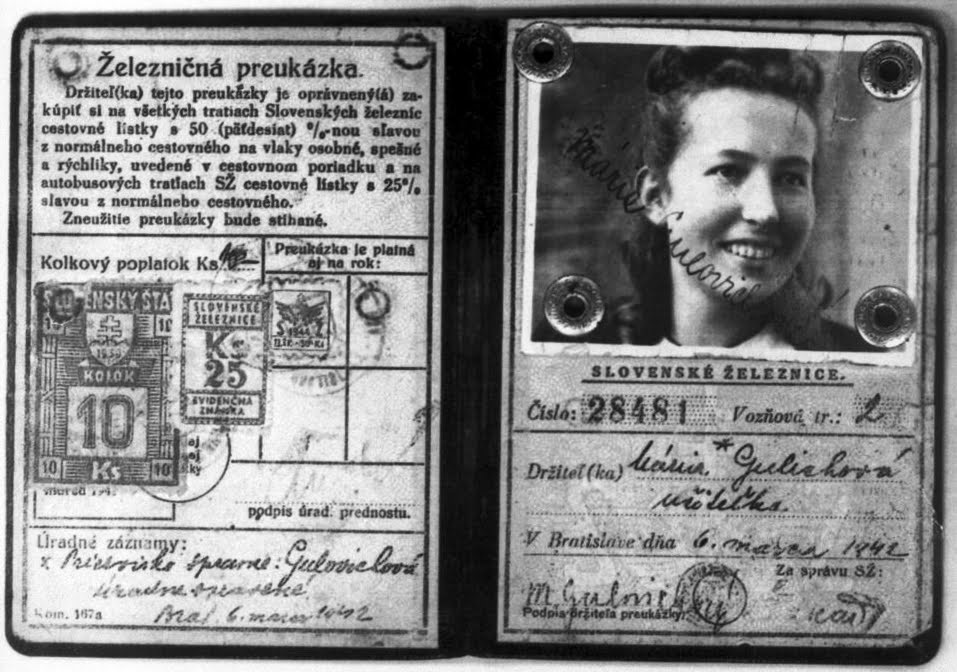 Železničná preukázka.
Držiteľ(ka) tejto preukázky je oprávnený(á) za-
kúpiť si na všetkých tratiach Slovenských železníc
cestovné lístky s 50 (päťdesiat) %-nou sľavou
z normálneho cestovného na vlaky osobné, spešné
a rýchliky, uvedené v cestovnom poriadku a na
autobusových tratiach SŽ cestovné lístky s 25%
sľavou z normálneho cestovného.
Zneužitie preukázky bude stíhané.
Kolkový poplatok Ks
Preukázka je platná
aj na rok:
SLOVENSKÝ ŠTÁT
10 10
1939
KOLOK
10
10 Ks 10
SLOVENSKÉ
ŽELEZNICE
Ks
25
EVIDENČNÁ
ZNÁMKA
S Ž
podpis úrad. prednostu.
Úradné záznamy:
Priezvisko správne: Gulovichová
Úradne opravené.
Brat. 6. marca 1942
Kom. 167a
Mária Gulovič
SLOVENSKÉ ŽELEZNICE.
Číslo: 28481 Vozňová tr.: 2
Držiteľ(ka) Mária * Gulichová
učiteľka
V Bratislave dňa 6. marca 1942
Za správu SŽ:
M Gulovič
Podpis držiteľa preukázky: